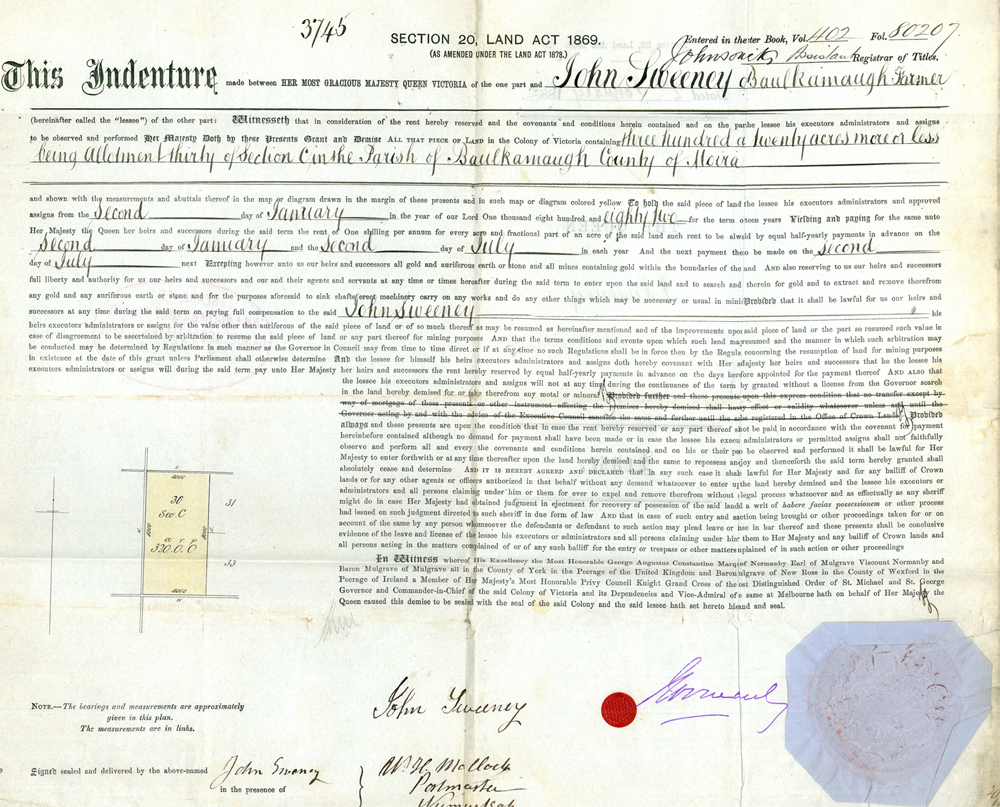 3745
SECTION 20, LAND ACT 1869.
(AS AMENDED UNDER THE LAND ACT 1878.)
Entered in the ter Book, Vol. 402 Fol. 80207
Assistant Registrar of Titles.
This Indenture made between HER MOST GRACIOUS MAJESTY QUEEN VICTORIA of the one part and John Sweeney Baulkamaugh Farmer
(hereinafter called the "lessee") of the other part: Witnesseth that in consideration of the rent hereby reserved and the covenants and conditions herein contained and on the part he lessee his executors administrators and assigns
to be observed and performed Her Majesty Doth by these Presents Grant and Demise ALL THAT PIECE OF LAND in the Colony of Victoria containing three hundred & twenty acres more or less
being Allotment thirty of Section C in the Parish of Baulkamaugh County of Moira
and shown with the measurements and abuttals thereof in the map or diagram drawn in the margin of these presents and in such map or diagram colored yellow To hold the said piece of land the lessee his executors administrators and approved
assigns from the Second day of January in the year of our Lord One thousand eight hundred and eighty two for the term o teen years Yielding and paying for the same unto
Her Majesty the Queen her heirs and successors during the said term the rent of One shilling per annum for every acre and fractional part of an acre of the said land such rent to be always id by equal half-yearly payments in advance on the
Second day of January and the Second day of July in each year And the next payment the o be made on the Second
day of July next Excepting however unto us our heirs and successors all gold and auriferous earth or stone and all mines containing gold within the boundaries of the and And also reserving to us our heirs and successors
full liberty and authority for us our heirs and successors and our and their agents and servants at any time or times hereafter during the said term to enter upon the said land and to search and therein for gold and to extract and remove therefrom
any gold and any auriferous earth or stone and for the purposes aforesaid to sink shafts erect machinery carry on any works and do any other things which may be necessary or usual in mini Provided that it shall be lawful for us our heirs and
successors at any time during the said term on paying full compensation to the said John Sweeney his
heirs executors administrators or assigns for the value other than auriferous of the said piece of land or of so much thereof as may be resumed as hereinafter mentioned and of the improvements upon said piece of land or the part so resumed such value in
case of disagreement to be ascertained by arbitration to resume the said piece of land or any part thereof for mining purposes And that the terms and conditions and events upon which such land may resumed and the manner in which such arbitration may
be conducted may be determined by Regulations in such manner as the Governor in Council may from time to time direct or if at any time no such Regulations shall be in force then by the Regula concerning the resumption of land for mining purposes
in existence at the date of this grant unless Parliament shall otherwise determine And the lessee for himself his heirs executors administrators and assigns doth hereby covenant with Her Majesty her heirs and successors that he the lessee his
executors administrators or assigns will during the said term pay unto Her Majesty her heirs and successors the rent hereby reserved by equal half-yearly payments in advance on the days herefore appointed for the payment thereof AND ALSO that
the lessee his executors administrators and assigns will not at any time during the continuance of the term by granted without a license from the Governor search
in the land hereby demised for or take therefrom any metal or mineral Provided further and these presents upon this express condition that no transfer except by
way of mortgage of these presents or other instrument affecting the premises hereby demised shall have effect or validity whatsoever unless until the
Governor acting by and with the advice of the Executive Council sanction the same and further until the same registered in the Office of Crown Lands Provided
always and these presents are upon the condition that in case the rent hereby reserved or any part thereof shot be paid in accordance with the covenant for payment
hereinbefore contained although no demand for payment shall have been made or in case the lessee his execu administrators or permitted assigns shall not faithfully
observe and perform all and every the covenants and conditions herein contained and on his or their par be observed and performed it shall be lawful for Her
Majesty to enter forthwith or at any time thereafter upon the land hereby demised and the same to repossess and enjoy and thenceforth the said term hereby granted shall
absolutely cease and determine AND IT IS HEREBY AGREED AND DECLARED that in any such case it shall be lawful for Her Majesty and for any bailiff of Crown
lands or for any other agents or officers authorized in that behalf without any demand whatsoever to enter up the land hereby demised and the lessee his executors or
administrators and all persons claiming under him or them for ever to expel and remove therefrom without legal process whatsoever and as effectually as any sheriff
might do in case Her Majesty had obtained judgment in ejectment for recovery of possession of the said land a writ of habere facias possessionem or other process
had issued on such judgment directed to such sheriff in due form of law And that in case of such entry and action being brought or other proceedings taken for or on
account of the same by any person whomsoever the defendants or defendant to such action may plead leave or se in bar thereof and these presents shall be conclusive
evidence of the leave and license of the lessee his executors or administrators and all persons claiming under him them to Her Majesty and any bailiff of Crown lands and
all persons acting in the matters complained of or of any such bailiff for the entry or trespass or other matters plained of in such action or other proceedings
In Witness whereof His Excellency the Most Honorable George Augustus Constantine Marq of Normanby Earl of Mulgrave Viscount Normanby and
Baron Mulgrave of Mulgrave all in the County of York in the Peerage of the United Kingdom and Baron ulgrave of New Ross in the County of Wexford in the
Peerage of Ireland a Member of Her Majesty's Most Honorable Privy Council Knight Grand Cross of the ost Distinguished Order of St. Michael and St. George
Governor and Commander-in-Chief of the said Colony of Victoria and its Dependencies and Vice-Admiral of e same at Melbourne hath on behalf of Her Majesty the
Queen caused this demise to be sealed with the seal of the said Colony and the said lessee hath set hereto his and and seal.
4000
30
Sec. C
a r p
320.0.0
8000
8000
31
33
4000
NOTE.—The bearings and measurements are approximately
given in this plan.
The measurements are in links.
John Sweeney
Normanby
Signed sealed and delivered by the above-named John Sweeney
in the presence of
Postmaster
Numurkah